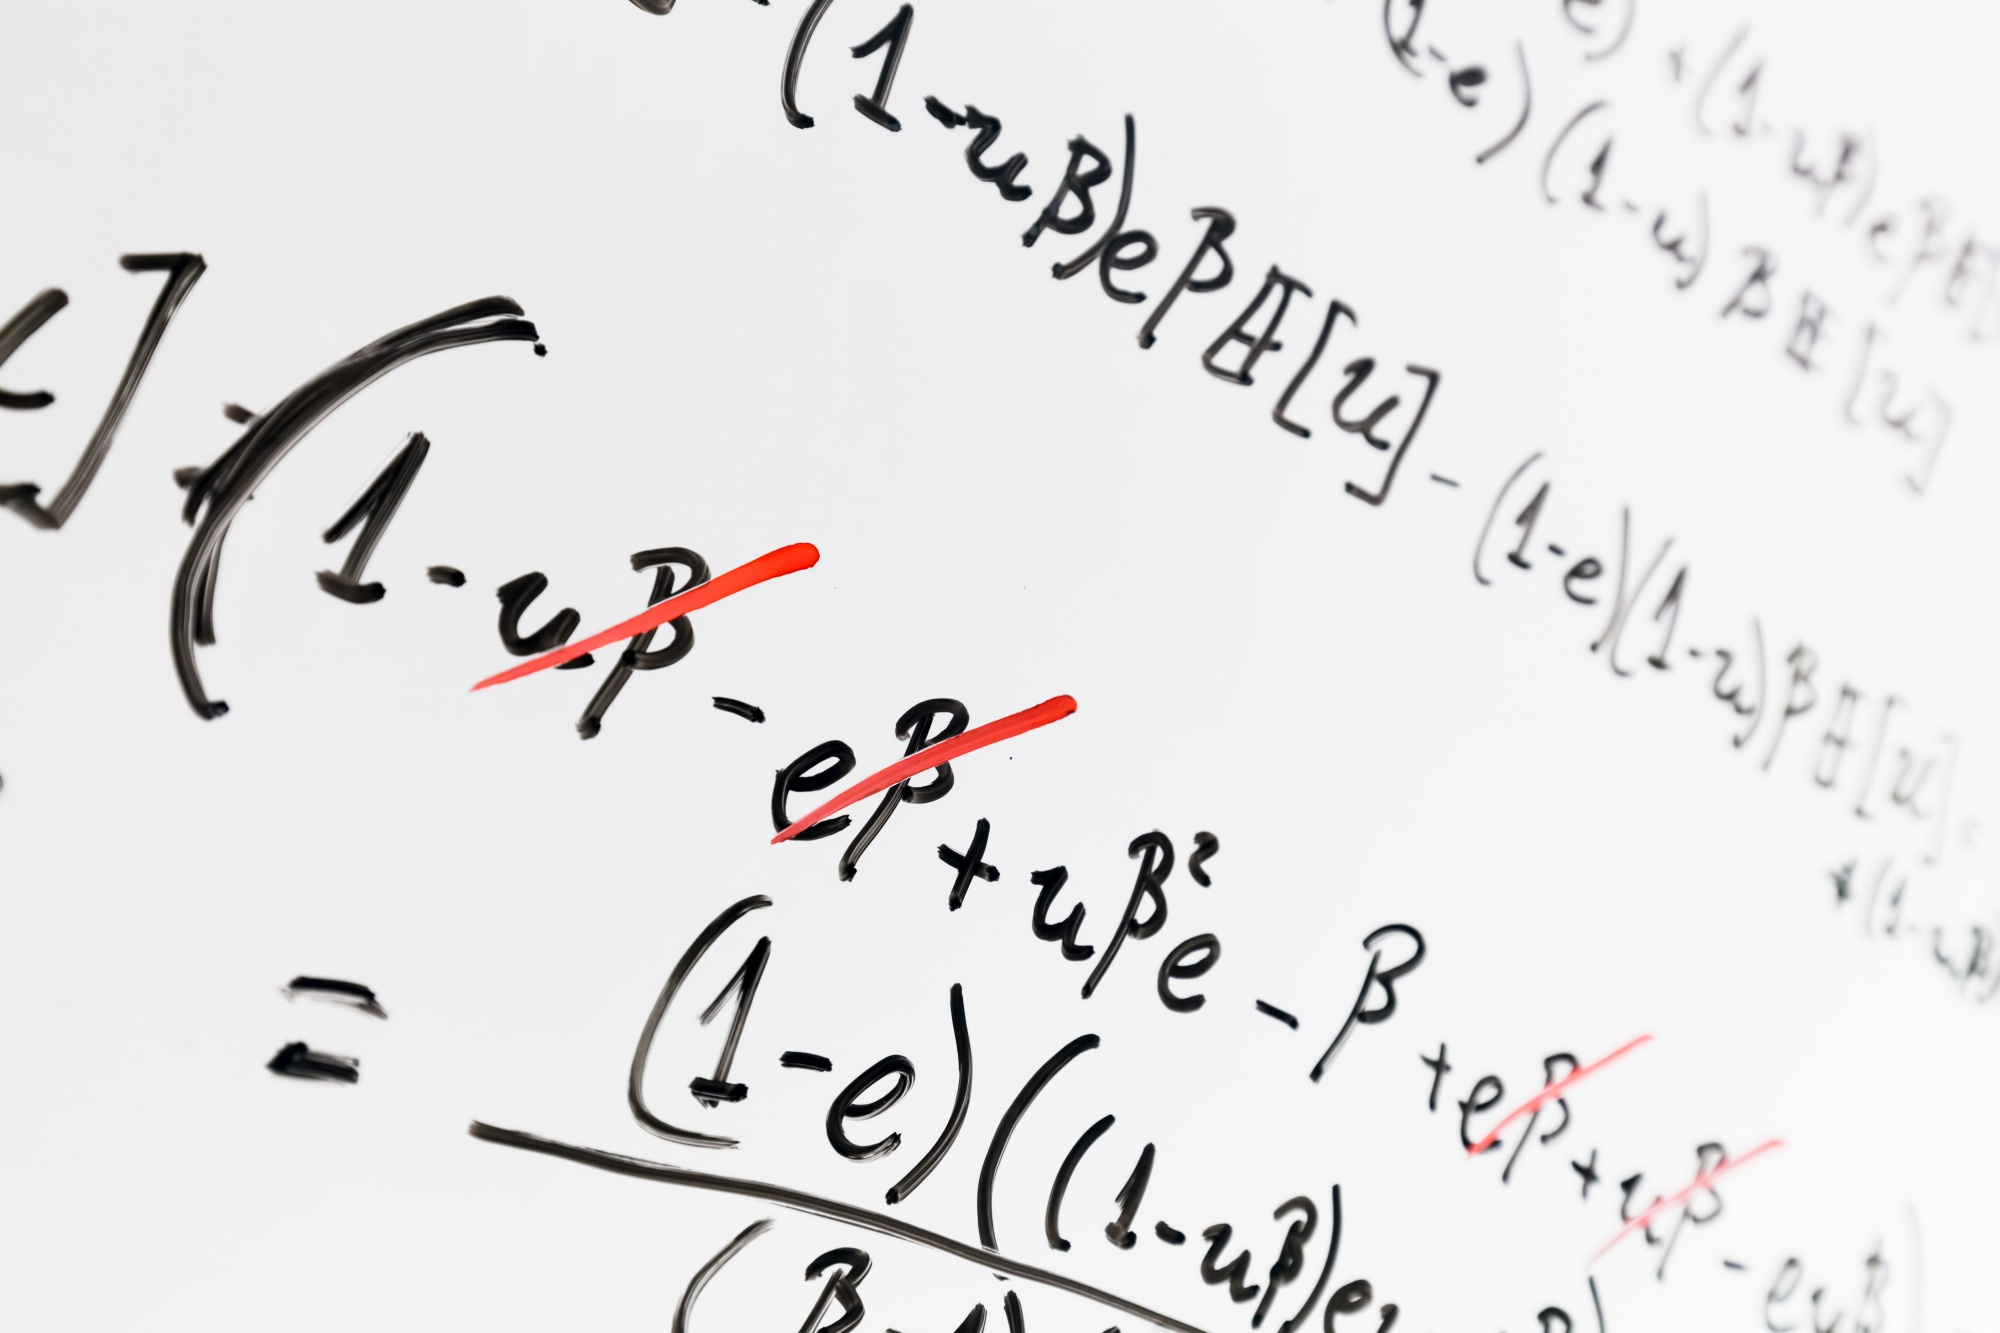 +(1-uβ)eβE[
(1-e)(1-u)βE[u]
(1-uβ)eβE[u]-(1-e)(1-u)βE[u]
+(1-uβ)
](1-uβ-eβ+uβ²e-β+eβ+uβ-euβ)
=(1-e)((1-uβ)e
(β-1